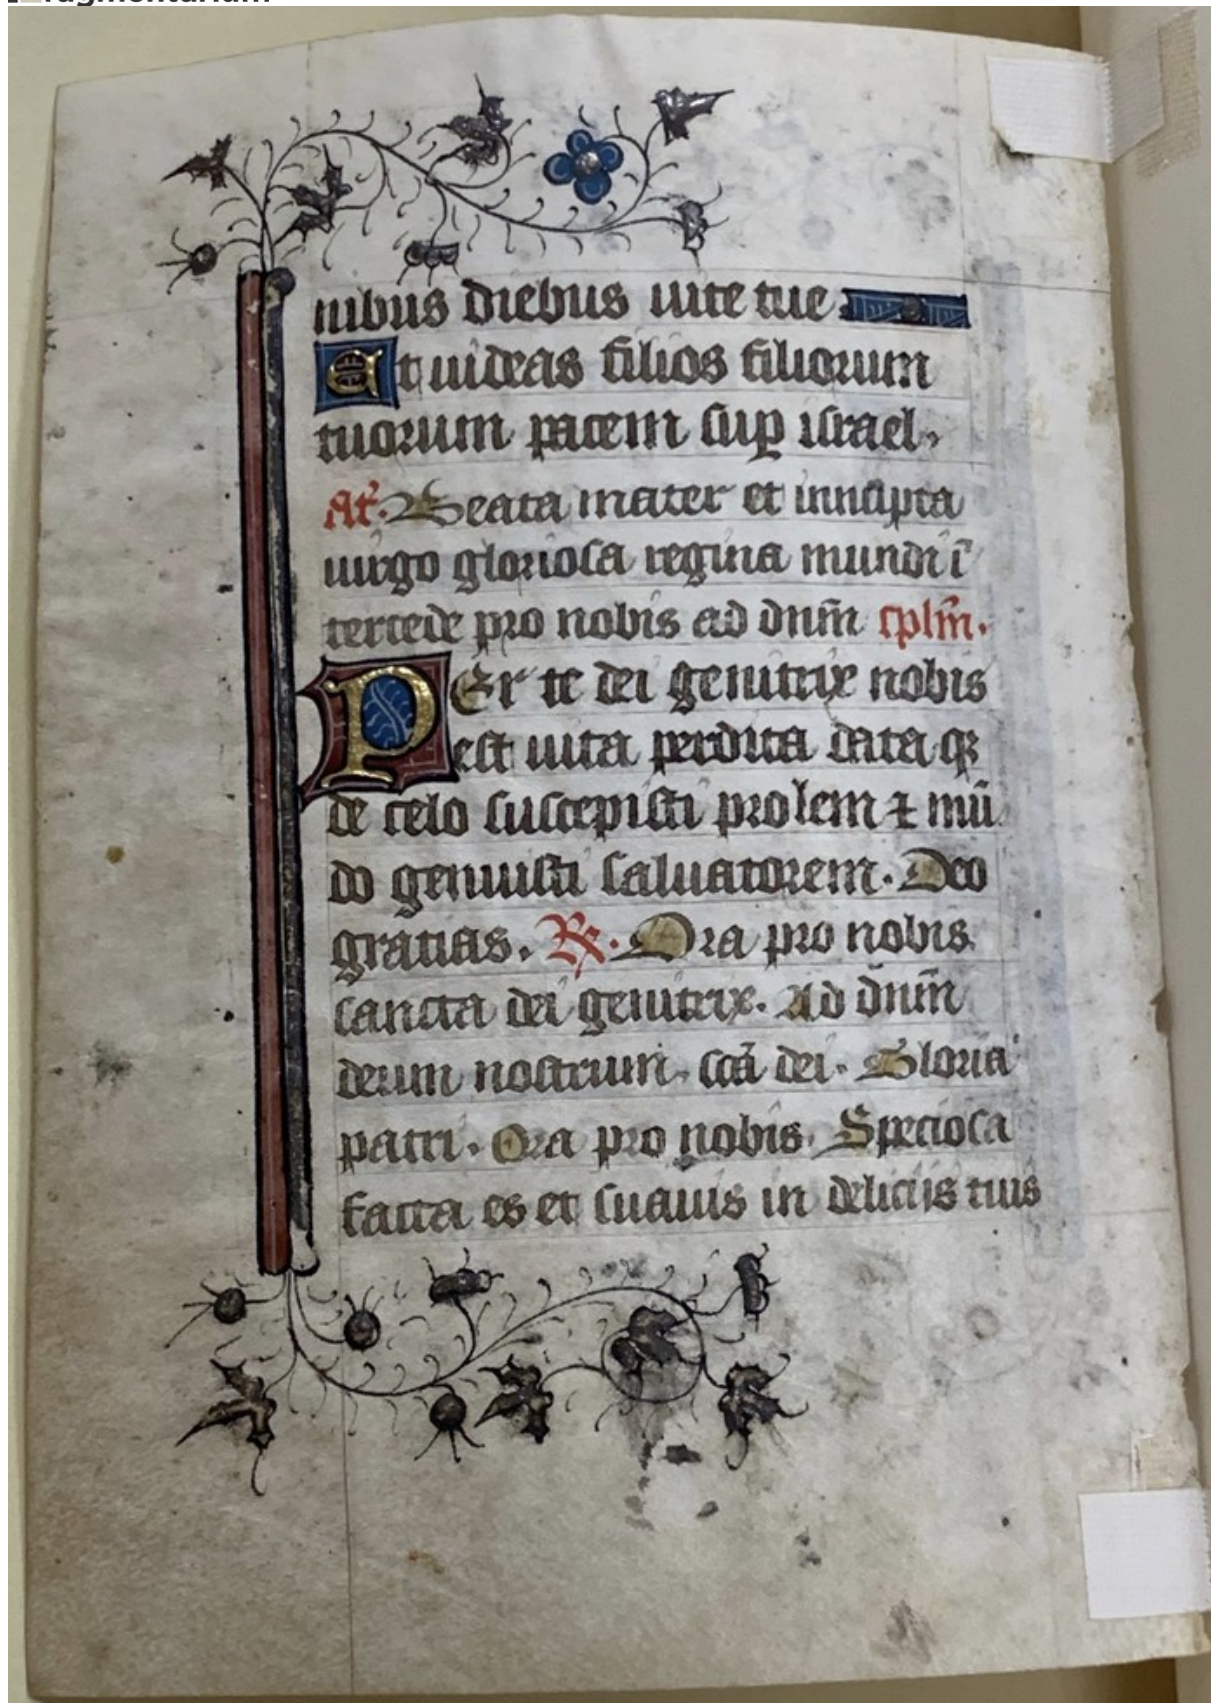 nibus diebus uite tue
Et uideas filios filiorum
tuorum pacem sup israel.
At. Beata mater et innupta
uirgo gloriosa regina mundi ī
tercede pro nobis ad dnm̄ cplm̄.
PEr te dei genitrix nobis
est uita perdita data qꝫ
de celo suscepisti prolem ⁊ mū
do genuisti saluatorem. Deo
gratias. R̸. Ora pro nobis
sancta dei genitrix. Ad dnm̄
deum nostrum. scā dei. Gloria
patri. Ora pro nobis. Speciosa
facta es et suauis in deliciis tuis